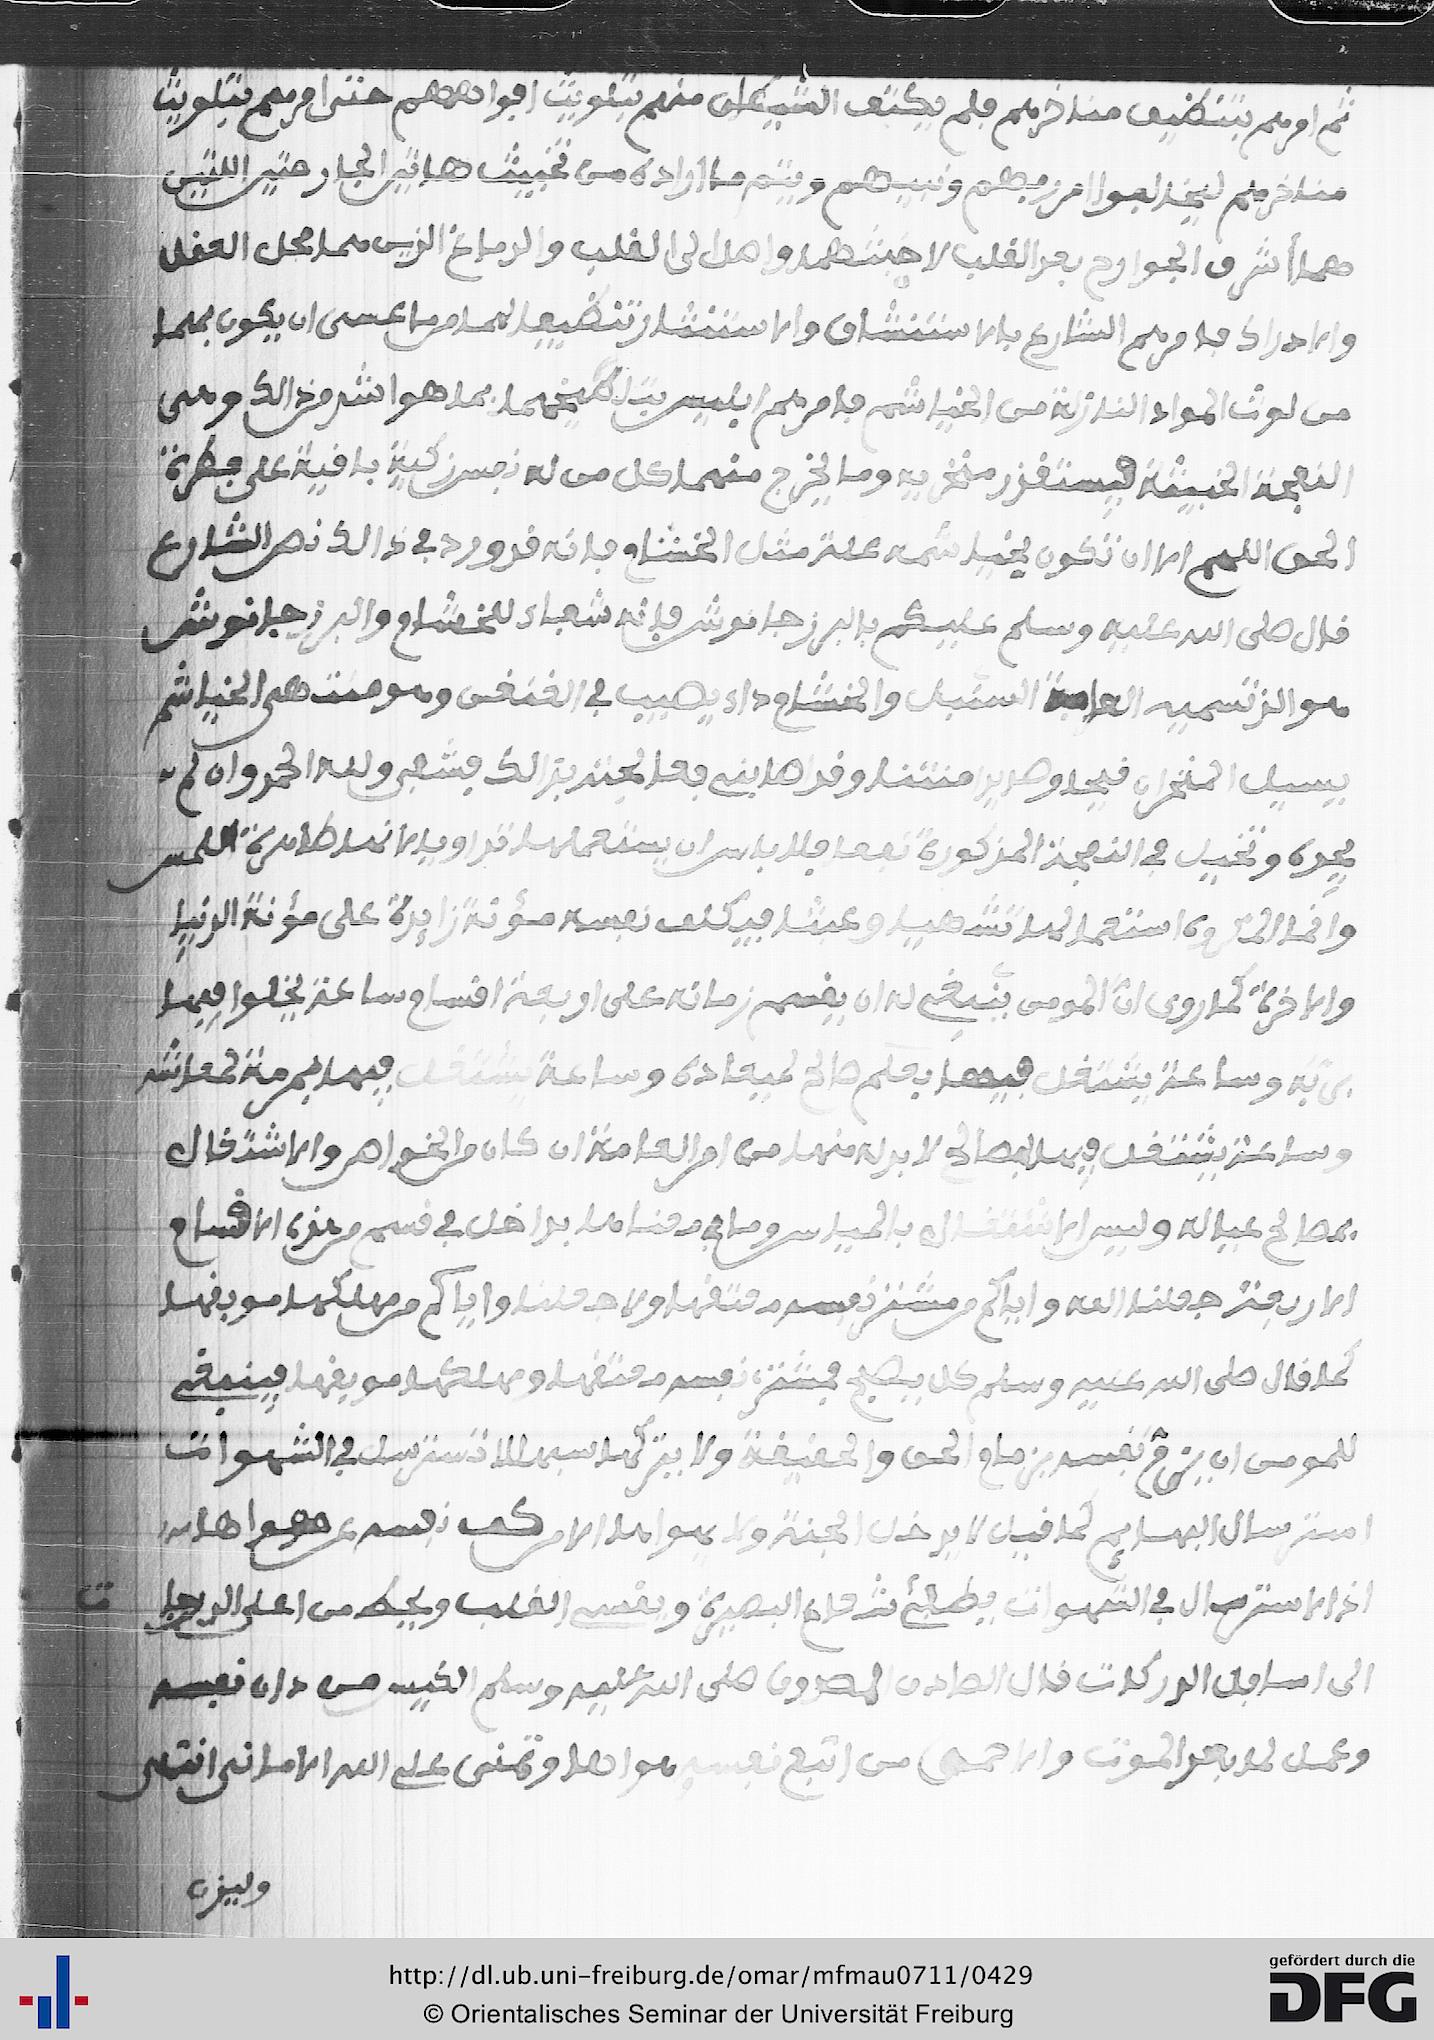 ثم امرهم بتنظيف مناخرهم فلم يكتف الشيطان منهم بتلويث افواههم حتى امرهم بتلويث
مناخرهم ليخالفوا امر ربهم ونبيهم ويتم ما اراده من تخبيث هاتين الجارحتين اللتين
هما أشرف الجوارح بعد القلب لا خبثهما واهل الى القلب والدماغ الذين هما محل العقل
والادراك فامرهم الشارع بالاستنشاق والاستنثار تنظيفا لهما مما عسى ان يكون بهما
من لوث المواد النازلة من الخياشم فامرهم ابليس بتلطيخهما بما هو اشد من ذالك وهي
النفحة الخبيثة فيستقذر منخريه وما يخرج منهما كل من له نفس زكية باقية على فطرة
الحق اللهم الا ان تكون بخياشمه علة مثل الخشام فانه قد ورد في ذالك نص الشارع
قال صلى الله عليه وسلم عليكم بالمرزجانوش فانه شفاء للخشام والمرزجانوش
هو الذ تسميه العامة السنبل والخشام داء يصيب في الغنغس وهو منت هى الخياشم
يسيل المنخران قيحا وصديدا منتنا وقد اصابني فعالجته بذالك فشفي ولله الحمد وان لم
يجده وتخيل في النفحة المذكورة نفعا فلا باس ان يستعملها تداويا لانها طاهرة اللمس
وانما المكروه استعمالها تشهيا وعبثا فيكلف نفسه مؤنة زايدة على مؤنة الدنيا
والاخرة كما روى ان المومن ينبغي له ان يقسم زمانه على اربعة اقسام ساعة يخلوا فيها
بربه وساعة يشتغل فيها بعلم صالح لميعاده وساعة يشتغل فيها بمرمة لمعاشه
وساعة يشتغل فيها بمصالح لا بد له منها من امر العامة ان كان من الخواص والا اشتغال
بمصالح عياله وليس الاشتغال بالميسر وما في معناها بداخل في قسم من هذه الاقسام
الاربعة جعلنا الله واياكم من مشتر نفسه معتقها ولا جعلنا واياكم من مهلكها موبقها
كما قال صلى الله عليه وسلم كل يصبح فمشتر نفسه معتقها ومهلكها موبقها فينبغي
للمومن ان يزم نفسه بزمام الحق والحقيقة ولا يتركها سبهللا تسترسل في الشهوات
استرسال البهايم كما قيل لا يدخل الجنة ولا يهواها الا من كف نفسه عن هواها
اذ الاسترسال في الشهوات يطفئ شعاع البصيرة ويقسي القلب ويحط من اعلى الدرجا
ت
الى اسافل الدركات قال الصادق المصدوق صلى الله عليه وسلم الكيس من دان نفسه
وعمل لما بعد الموت والاحمق من اتبع نفسه هواها وتمنى على الله الاماني انتهى
http://dl.ub.uni-freiburg.de/omar/mfmau0711/0429
© Orientalisches Seminar der Universität Freiburg
gefördert durch die
DFG